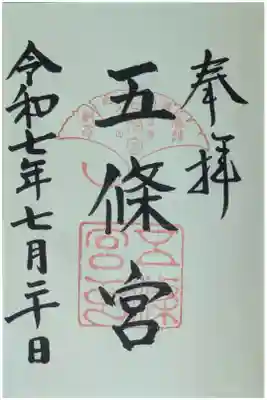 奉拝
五條宮
令和七年七月二十日